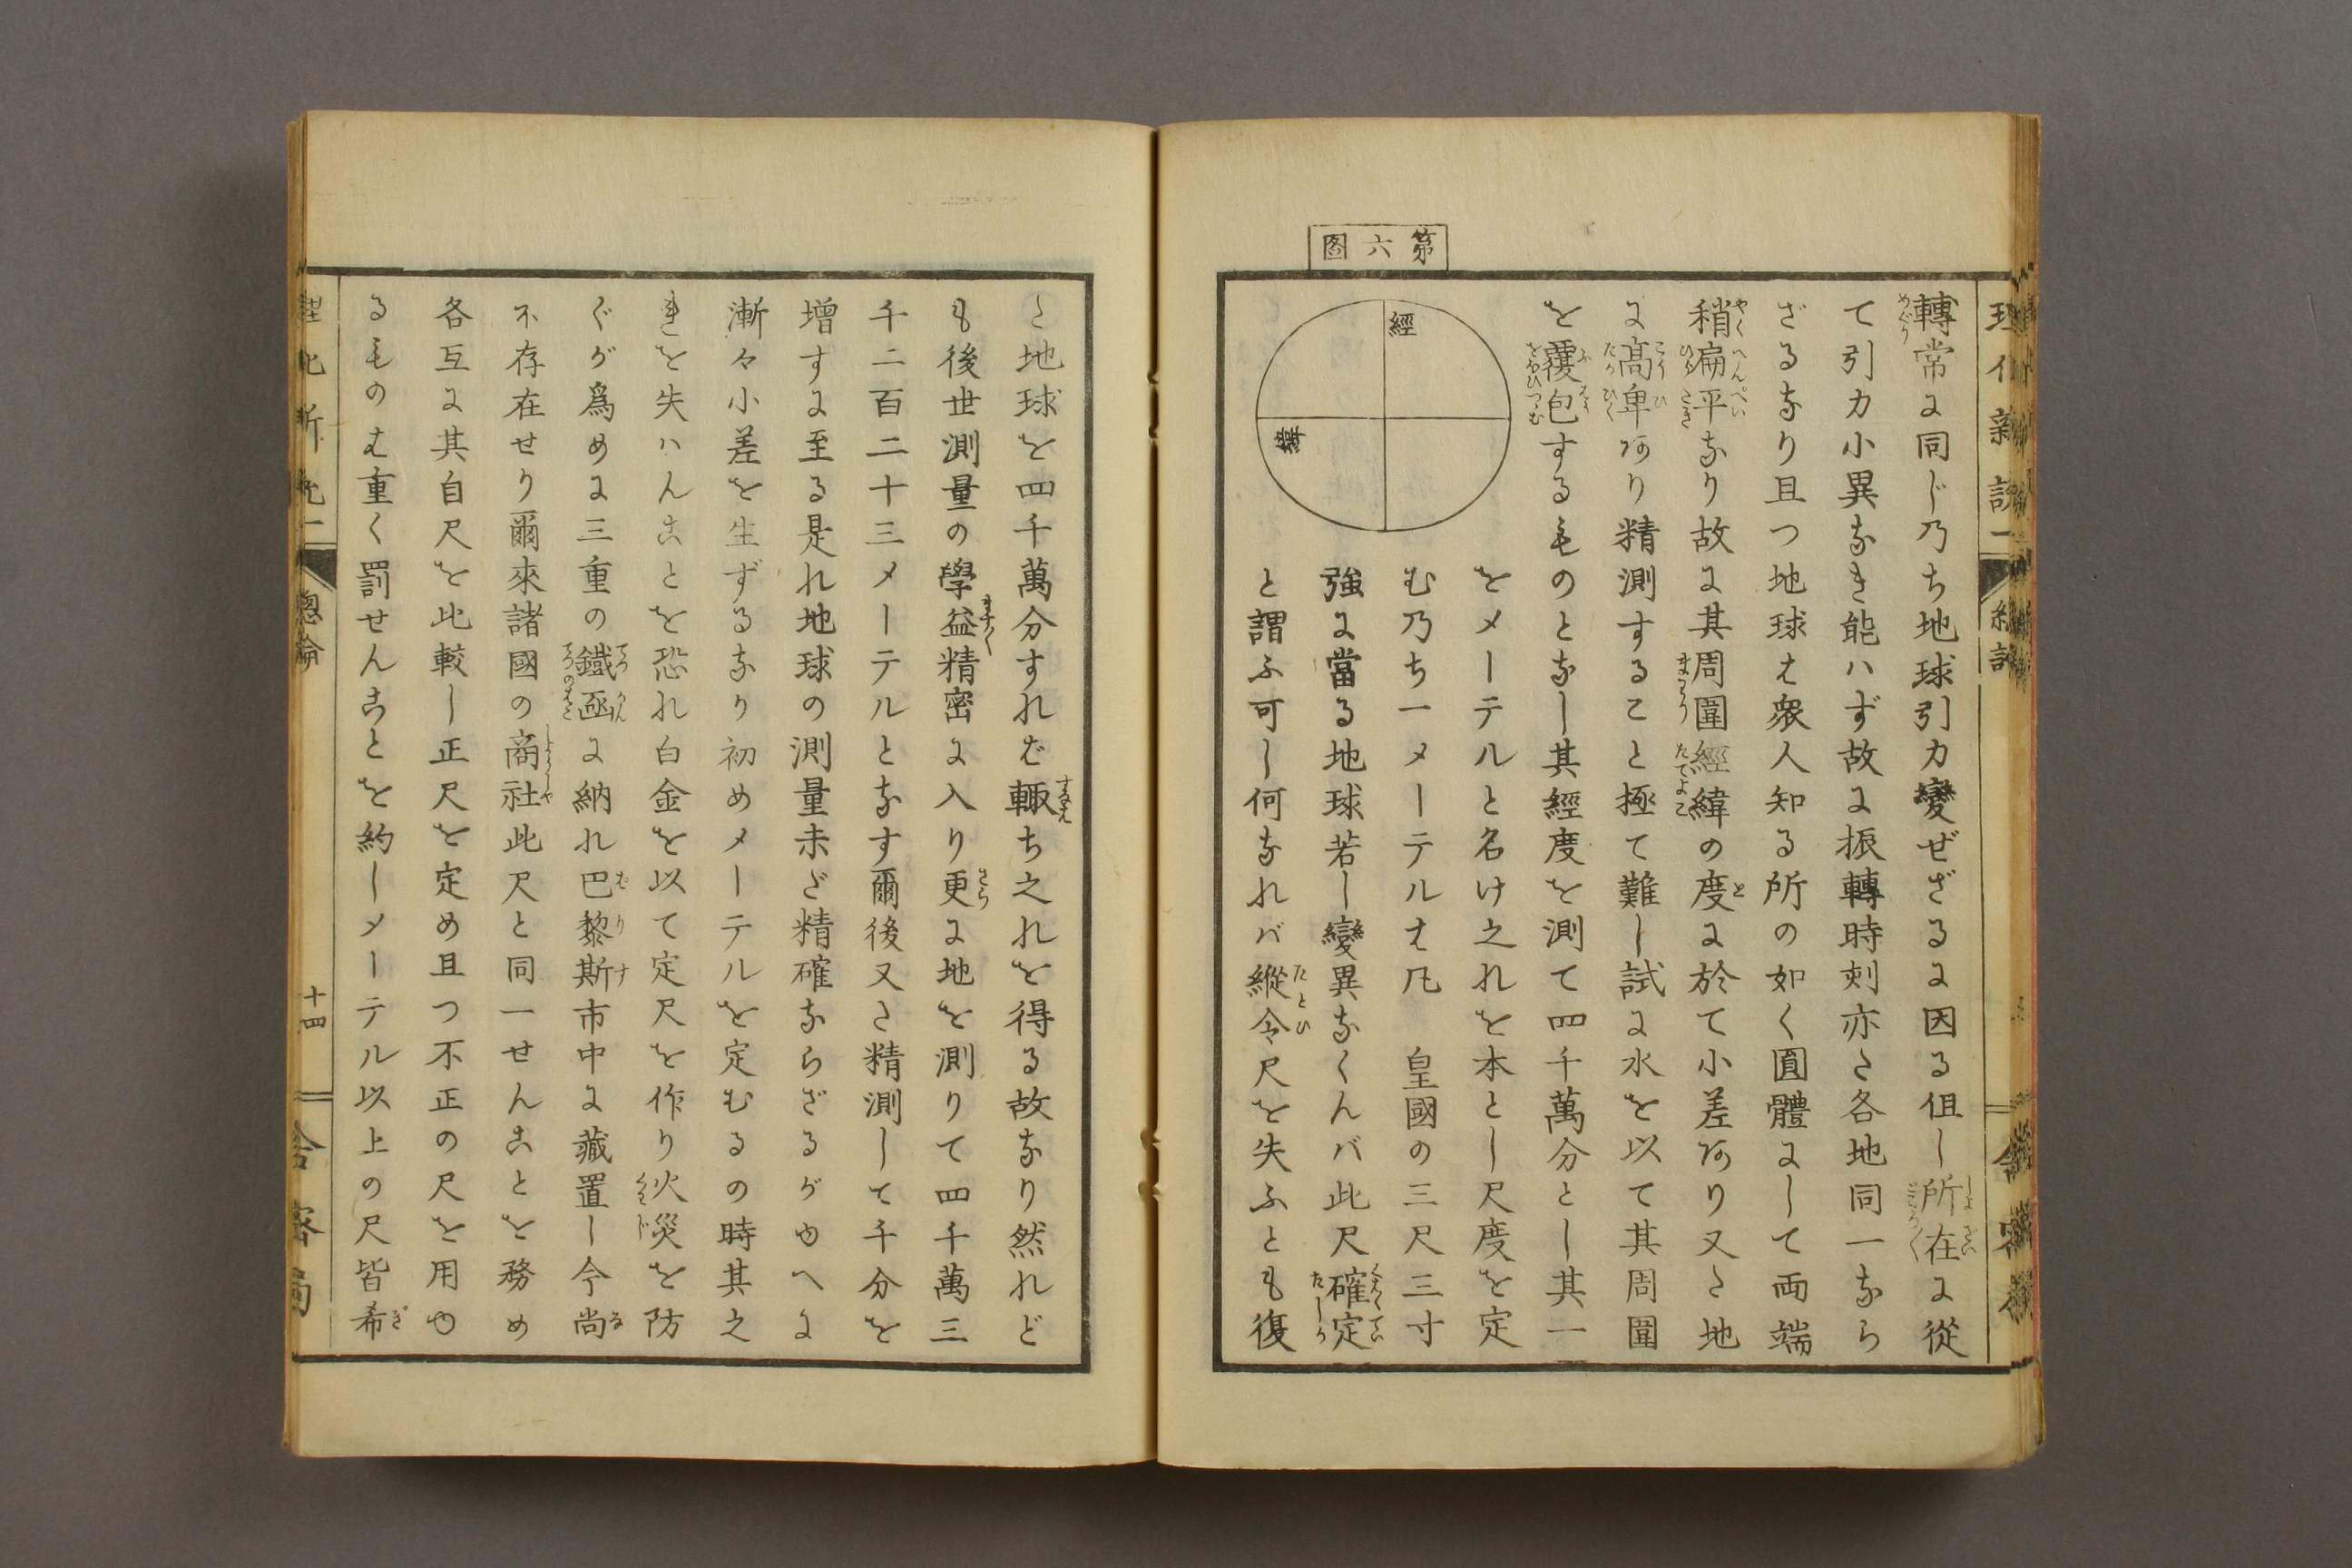 第六図
轉常に同じ乃ち地球引力變ぜざるに因る但し所在に從
て引力小異なき能ハず故に振轉時刻亦た各地同一なら
ざるなり且つ地球は衆人知る所の如く圓體にして両端
稍扁平なり故に其周圍經緯の度に於て小差あり又た地
に高卑あり精測すること極て難し試に水を以て其周圍
を覆包するものとなし其經度を測て四千萬分とし其一
經
緯
をメーテルと名け之れを本とし尺度を定
む乃ち一メーテルは凡 皇國の三尺三寸
強に當る地球若し變異なくんバ此尺確定
と謂ふ可し何なれバ縱令尺を失ふとも復
た地球を四千萬分すれば輙ち之れを得る故なり然れど
も後世測量の學益精密に入り更に地を測りて四千萬三
千二百二十三メーテルとなす爾後又た精測して千分を
増すに至る是れ地球の測量未ざ精確ならざるがゆへに
漸々小差を生ずるなり初めメーテルを定むるの時其之
れを失ハんことを恐れ白金を以て定尺を作り火災を防
ぐが爲めに三重の鐵凾に納れ巴黎斯市中に藏置し今尚
不存在せり爾來諸國の商社此尺と同一せんことを務め
各互に其自尺を比較し正尺を定め且つ不正の尺を用ゆ
るものは重く罰せんことを約しメーテル以上の尺皆希
總論
十四